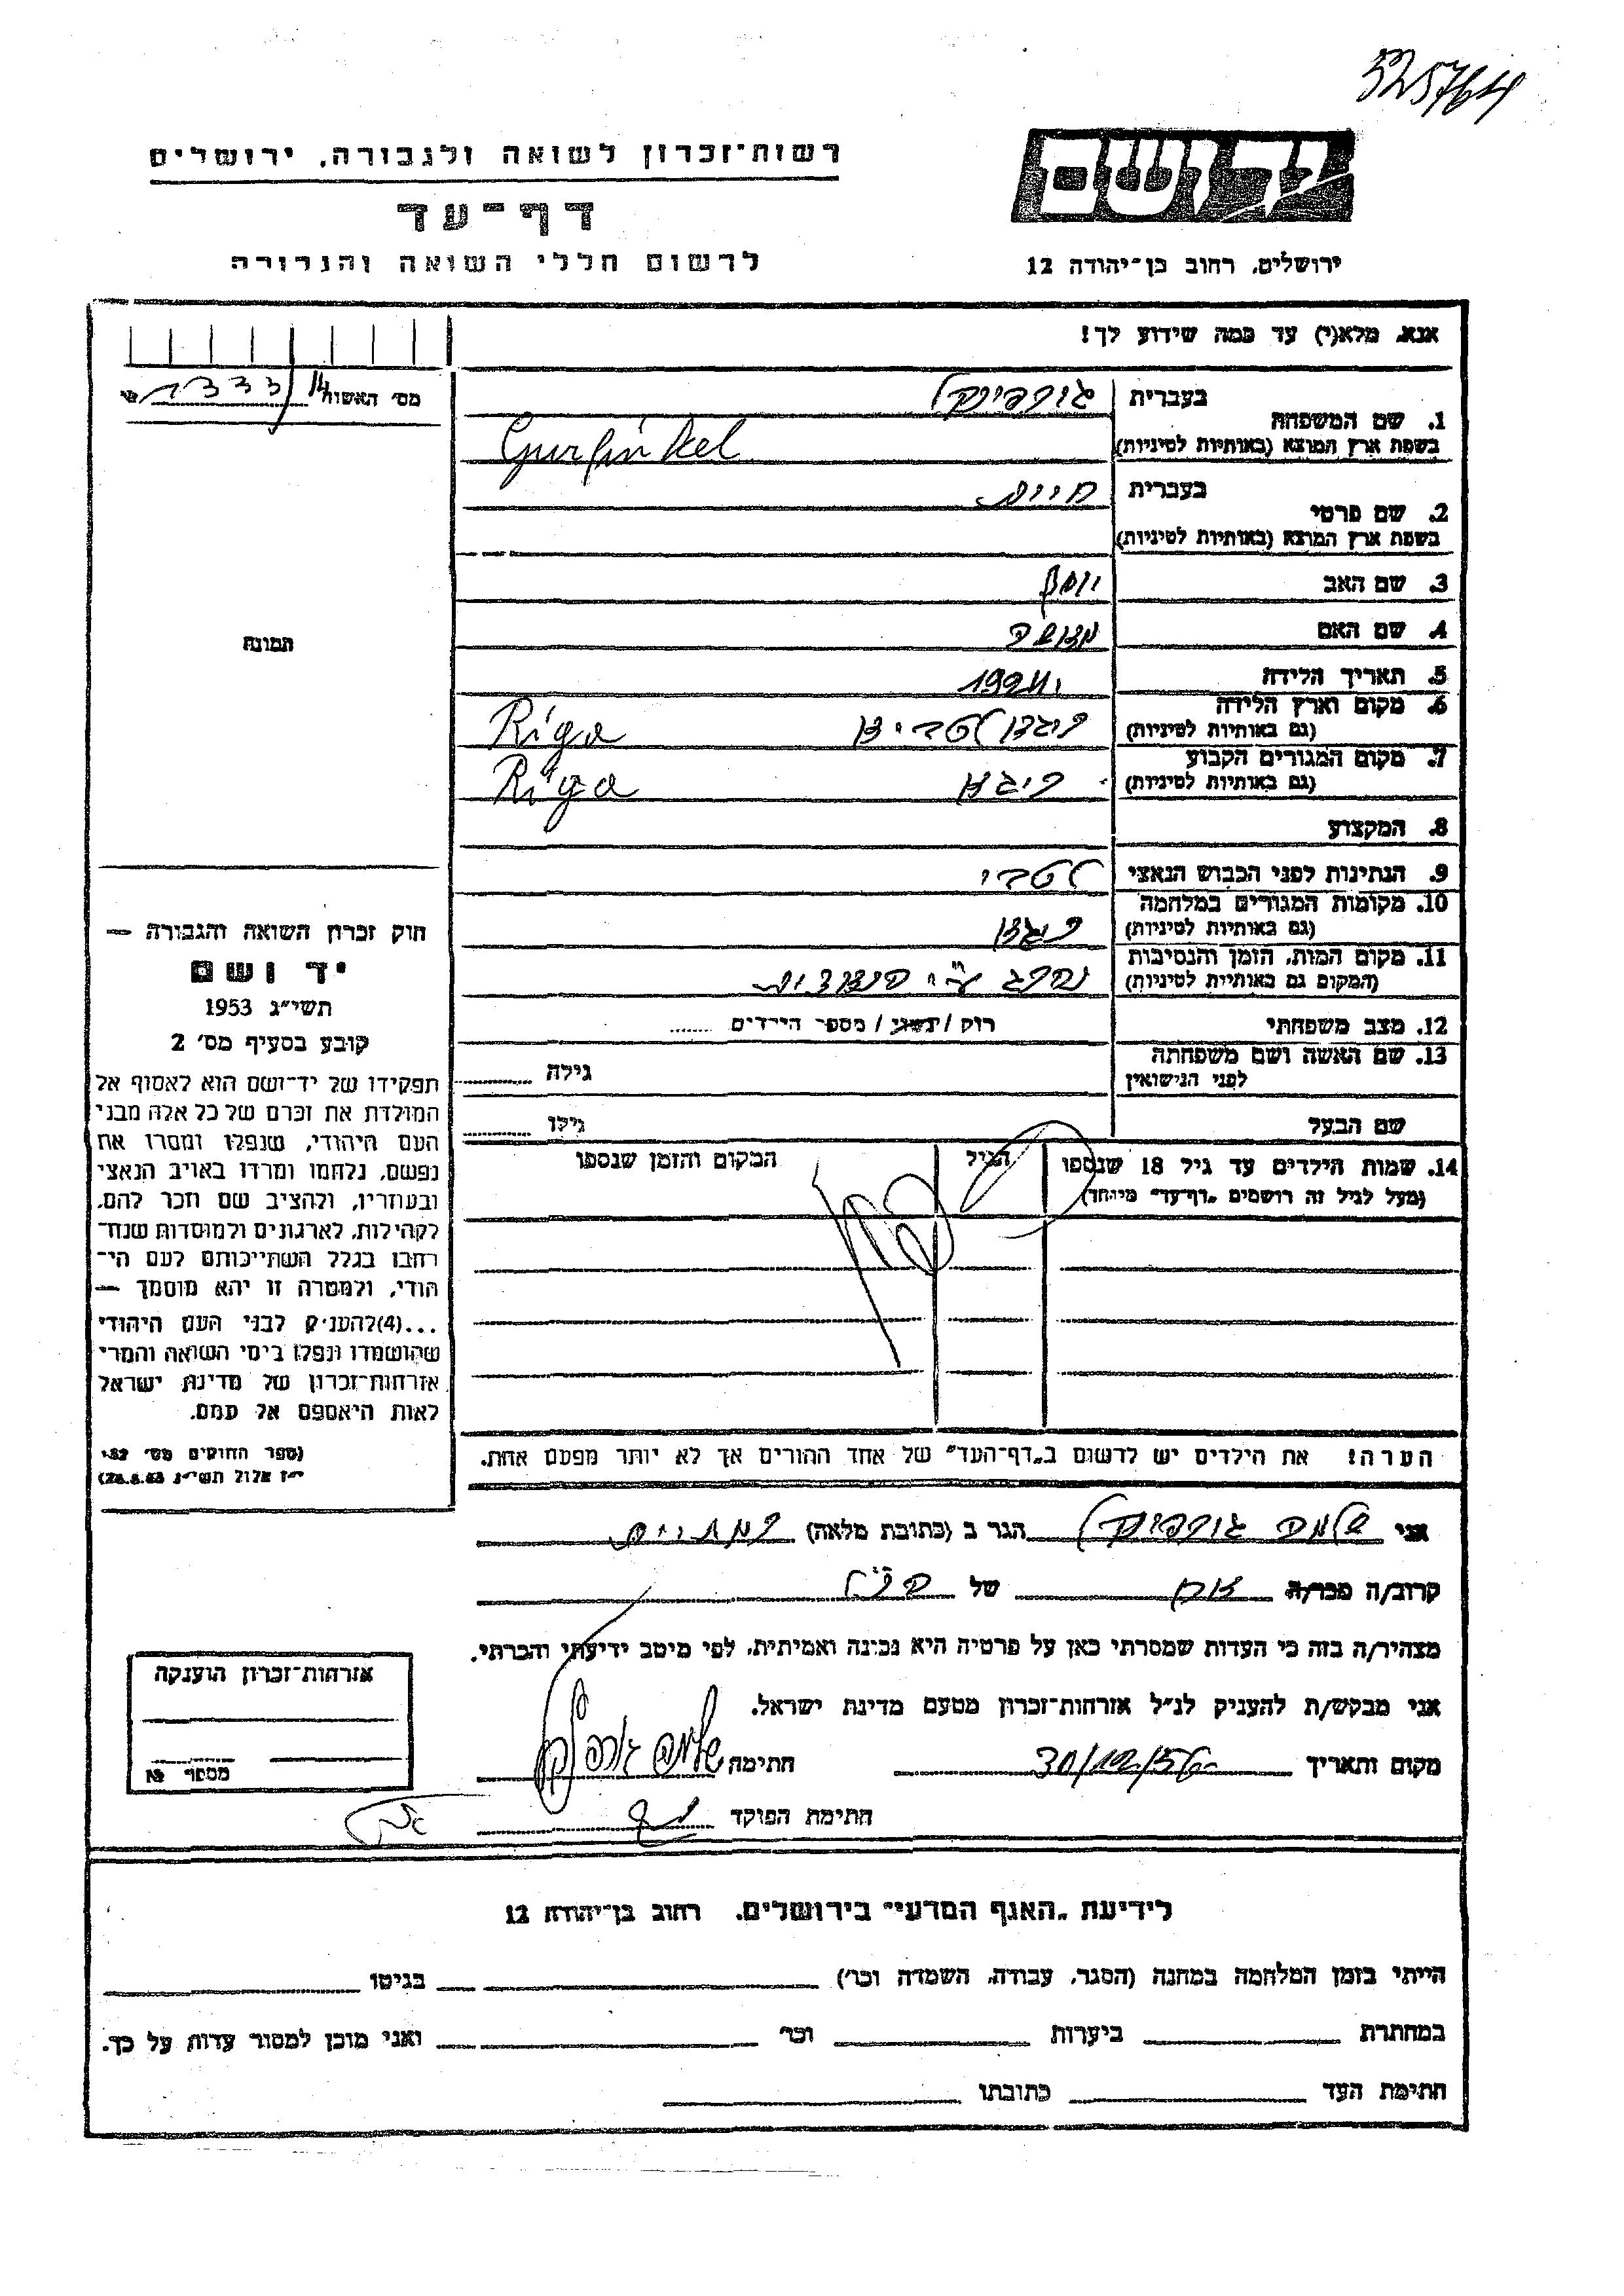 325764
יד ושם
רשות־זכרון לשואה ולגבורה, ירושלים
דף־עד
לרשום חללי השואה והגבורה
ירושלים, רחוב בן־יהודה 12
אנא, מלא(י) עד כמה שידוע לך!
מס' האשור
1. שם המשפחה
בעברית גורפינקל
בשפת ארץ המוצא (באותיות לטיניות) Gurfinkel
2. שם פרטי
בעברית חיים
בשפת ארץ המוצא (באותיות לטיניות)
3. שם האב יוסף
4. שם האם
5. תאריך הלידה
6. מקום וארץ הלידה
(גם באותיות לטיניות) ריגה לטביה Riga
7. מקום המגורים הקבוע
(גם באותיות לטיניות) ריגא Riga
8. המקצוע
9. הנתינות לפני הכבוש הנאצי לטבי
10. מקומות המגורים במלחמה
(גם באותיות לטיניות) ריגה
11. מקום המות, הזמן והנסיבות
(המקום גם באותיות לטיניות) נהרג ע"י
12. מצב משפחתי רווק / נשוי / מספר הילדים
13. שם האשה ושם משפחתה
לפני הנישואין
גילה
שם הבעל גילו
14. שמות הילדים עד גיל 18 שנספו
(מעל לגיל זה רושמים "דף־עד" מיוחד)
הגיל
המקום והזמן שנספו
הערה! את הילדים יש לרשום ב"דף־העד" של אחד ההורים אך לא יותר מפעם אחת.
תמונה
חוק זכרון השואה והגבורה —
יד ושם
תשי"ג 1953
קובע בסעיף מס' 2
תפקידו של יד־ושם הוא לאסוף אל
המולדת את זכרם של כל אלה מבני
העם היהודי, שנפלו ומסרו את
נפשם, נלחמו ומרדו באויב הנאצי
ובעוזריו, ולהציב שם וזכר להם,
לקהילות, לארגונים ולמוסדות שנח־
רבו בגלל השתייכותם לעם הי־
הודי, ולמטרה זו יהא מוסמך —
...(4)להעניק לבני העם היהודי
שהושמדו ונפלו בימי השואה והמרי
אזרחות־זכרון של מדינת ישראל
לאות היאספם אל עמם.
(ספר החוקים מס' 132
י"ז אלול תשי"ג 28.8.53)
אני שלמה גורפינקל הגר ב (כתובת מלאה)
קרוב/ה מכר/ה אח של הנ"ל
מצהיר/ה בזה כי העדות שמסרתי כאן על פרטיה היא נכונה ואמיתית, לפי מיטב ידיעתי והכרתי.
אני מבקש/ת להעניק לנ"ל אזרחות־זכרון מטעם מדינת ישראל.
מקום ותאריך 30/12/56 חתימה שלמה גורפינקל
חתימת הפוקד
אזרחות־זכרון הוענקה
מספר №
לידיעת "האגף המדעי" בירושלים, רחוב בן־יהודה 12
הייתי בזמן המלחמה במחנה (הסגר, עבודה, השמדה וכר') בגיטו
במחתרת ביערות וכר' ואני מוכן למסור עדות על כך.
חתימת העד כתובתו